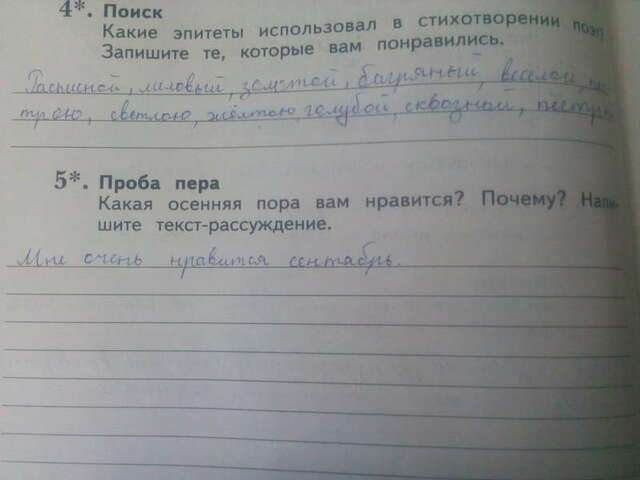 4*. Поиск
Какие эпитеты использовал в стихотворении поэт?
Запишите те, которые вам понравились.
Расписной, лиловый, золотой, багряный, веселой, пёс-
трою, светлою, жёлтою, голубой, сквозной, пёстрые
5*. Проба пера
Какая осенняя пора вам нравится? Почему? Напи-
шите текст-рассуждение.
Мне очень нравится сентябрь.